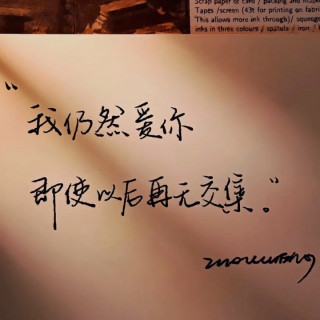 Scrap paper or card / packing and
Tapes /screen (43t for printing on
This allows more ink through)/
inks in three colours / spatula / iron /
“我仍然爱你
即使以后再无交集。”